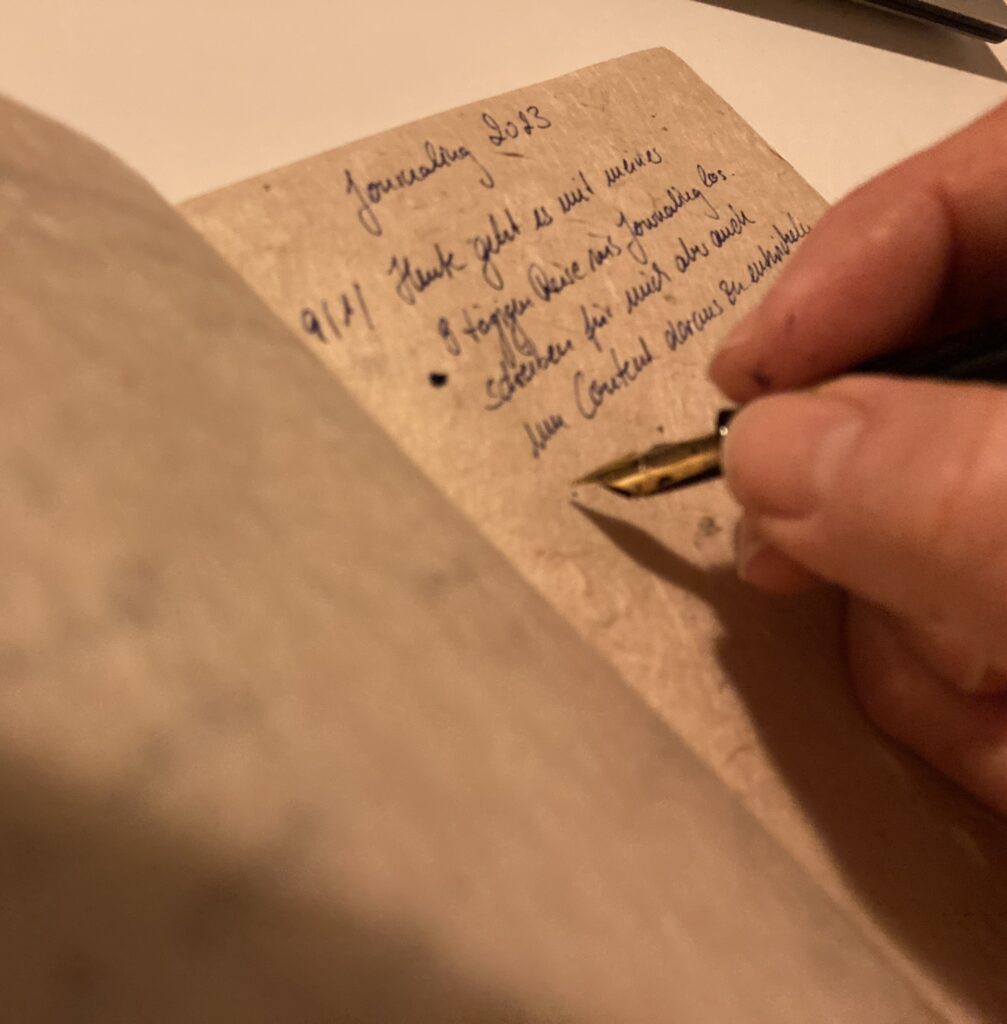 Journaling 2023
9/1/ Heute geht es mit meiner
9 tägigen Reise ins Journaling los.
schreiben für mich aber auch
um Content daraus zu entwickeln